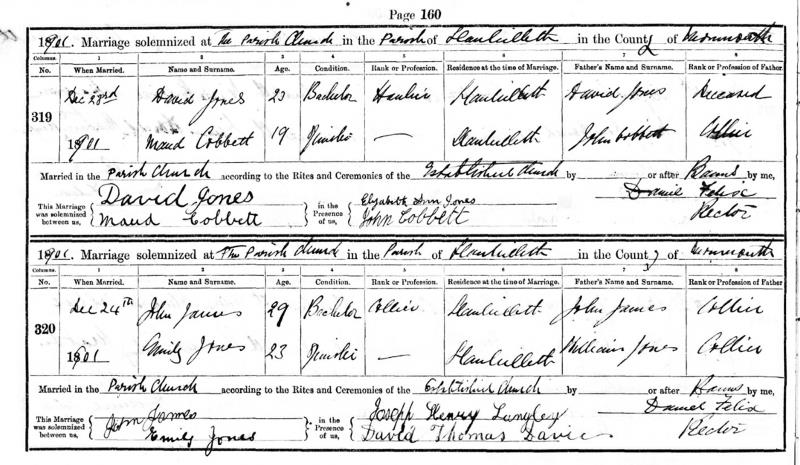 Page 160
1901. Marriage solemnized at The Parish Church in the Parish of Llanhilleth in the County of Monmouth
Columns. 1 2 3 4 5 6 7 8
No. When Married. Name and Surname. Age. Condition. Rank or Profession. Residence at the time of Marriage. Father's Name and Surname. Rank or Profession of Father.
319 Dec 23rd David Jones 23 Bachelor Haulier Llanhilleth David Jones Deceased
1901 Maud Cobbett 19 Spinster — Llanhilleth John Cobbett Collier
Married in the Parish Church according to the Rites and Ceremonies of the Established Church by or after Banns by me,
This Marriage was solemnized between us, David Jones Maud Cobbett in the Presence of us, Elizabeth Ann Jones John Cobbett Daniel Felix Rector
1901. Marriage solemnized at The Parish Church in the Parish of Llanhilleth in the County of Monmouth
Columns. 1 2 3 4 5 6 7 8
No. When Married. Name and Surname. Age. Condition. Rank or Profession. Residence at the time of Marriage. Father's Name and Surname. Rank or Profession of Father.
320 Dec 24th John James 29 Bachelor Collier Llanhilleth John James Collier
1901 Emily Jones 23 Spinster — Llanhilleth William Jones Collier
Married in the Parish Church according to the Rites and Ceremonies of the Established Church by or after Banns by me,
This Marriage was solemnized between us, John James Emily Jones in the Presence of us, Joseph Henry Langley David Thomas Davies Daniel Felix Rector